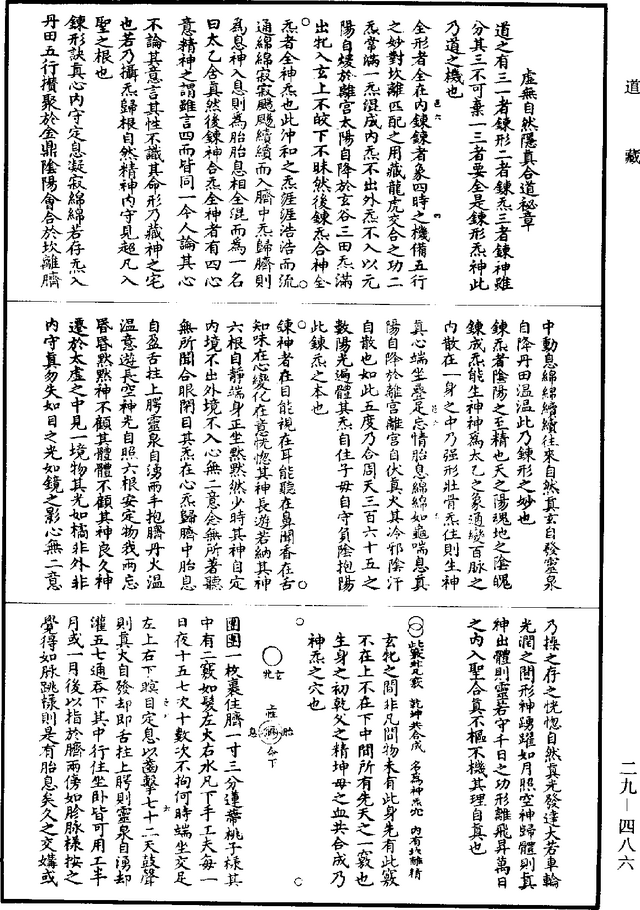 道藏
虛無自然隱真合道秘章
道之有三一者鍊形二者鍊炁三者鍊神雖
分其三不可棄一三者要全是鍊形炁神此
乃道之機也
全形者全在內鍊鍊者象四時之機備五行
之妙對坎離匹配之用藏龍虎交合之功二
炁常滿一炁混成內炁不出外炁不入以元
陽自煖於離宮太陽自降於玄谷三田炁滿
出牝入玄上不皎下不昧然後鍊炁合神全
炁者全神炁也此沖和之炁涯涯浩浩而流
通綿綿寂寂飂飂續續而入臍中炁歸臍則
為息神入息則為胎胎息相全混而為一名
曰太乙含真然後鍊神合炁全神者有四心
意精神之謂雖言四而皆同一今人論其心
不論其意言其性不識其命形乃藏神之宅
也若乃攝炁歸根自然精神內守見超凡入
聖之根也
鍊形訣真心內守定息凝寂綿綿若存炁入
丹田五行攢聚於金鼎陰陽會合於坎離臍
中動息綿綿續續往來自然真玄白發靈泉
自降丹田溫溫此乃鍊形之妙也
鍊炁者陰陽之至精也天之陽魂地之陰魄
鍊成炁能生神神為太乙之象通變百脉之
內散在一身之中乃强形壯骨炁住則生神
真心端坐疊足忘情胎息綿綿如龜喘息真
陽自降於離宮離宮自伏真火其冷邪陰汗
自散也如此五度乃合周天三百六十五之
數陽光遍體其炁自住子母自守負陰抱陽
此鍊炁之本也
鍊神者在目能視在耳能聽在鼻聞香在舌
知味在心變化在意恍惚其神長遊若納其神
六根自靜端身正坐默默然少時其神自定
內境不出外境不入心無二意念無所著聽
無所聞合眼閉目其炁在心炁歸臍中胎息
自盈舌柱上腭靈泉自湧兩手抱臍丹火溫
溫意遊長空神光自照六根安定物我兩忘
昏昏默默神不顧其體體不顧其神良久神
遷於太虛之中見一境物其光如橘非外非
內守真勿失如日之光如鏡之影心無二意
乃操之存之恍惚自然真光發達大若車輪
光潤之間形神踴躍如月照空神歸體則真
神出體則靈若守千日之功形離飛昇萬日
之內入聖合真不樞不機其理自真也
此竅非凡竅 乾坤共合成 名為神炁穴 內有坎離精
玄牝之間非凡間物未有此身先有此竅
不在上不在下中間所有先天之一竅也
生身之初乾父之精坤母之血共合成乃
神炁之穴也
玄牝
上
胎
息
下
圈團一枚裹住臍一寸三分蓮蕚桃子樣其
中有二竅如髮左火右水凡下手工夫每一
日夜十五七次十數次不拘何時端坐交足
左上右下瞑目定息以齒擊七十二天鼓聲
則真火自發却即舌柱上腭則靈泉自湧却
灌五七通吞下其中行住坐卧皆可用工半
月或一月後以指於臍兩傍如胗脉樣按之
覺得如脉跳樣則是有胎息矣久之交媾或
二九—四八六